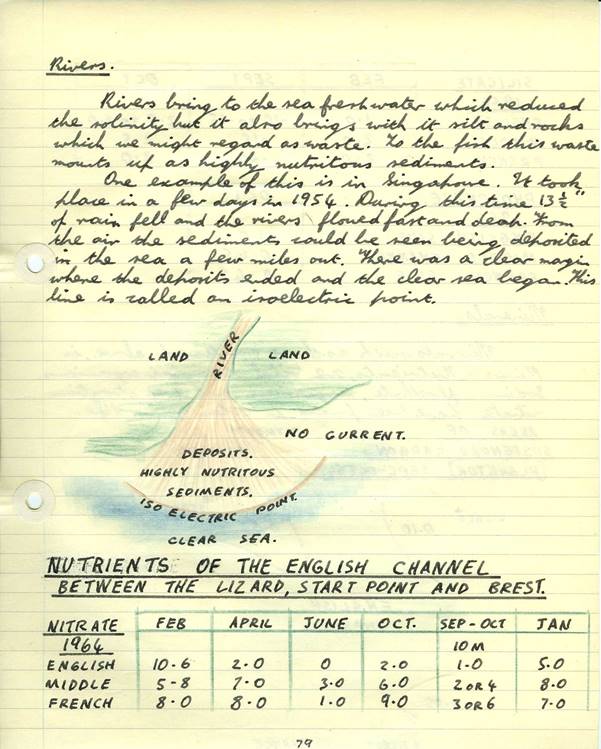 Rivers.
Rivers bring to the sea freshwater which reduced
the solinity but it also brings with it silt and rocks
which we might regard as waste. To the fish this waste
mounts up as highly nutritous sediments.
One example of this is in Singapore. It took
place in a few days in 1954. During this time 13½"
of rain fell and the rivers flowed fast and deep. From
the air the sediments could be seen being deposited
in the sea a few miles out. There was a clear margin
where the deposits ended and the clear sea began. This
line is called an isoelectric point.
LAND RIVER LAND
NO CURRENT.
DEPOSITS.
HIGHLY NUTRITOUS
SEDIMENTS.
ISO ELECTRIC POINT.
CLEAR SEA.
NUTRIENTS OF THE ENGLISH CHANNEL
BETWEEN THE LIZARD, START POINT AND BREST.
NITRATE FEB APRIL JUNE OCT. SEP-OCT JAN
1964 10M
ENGLISH 10.6 2.0 0 2.0 1.0 5.0
MIDDLE 5-8 7.0 3.0 6.0 2 OR 4 8.0
FRENCH 8.0 8.0 1.0 9.0 3 OR 6 7.0
79